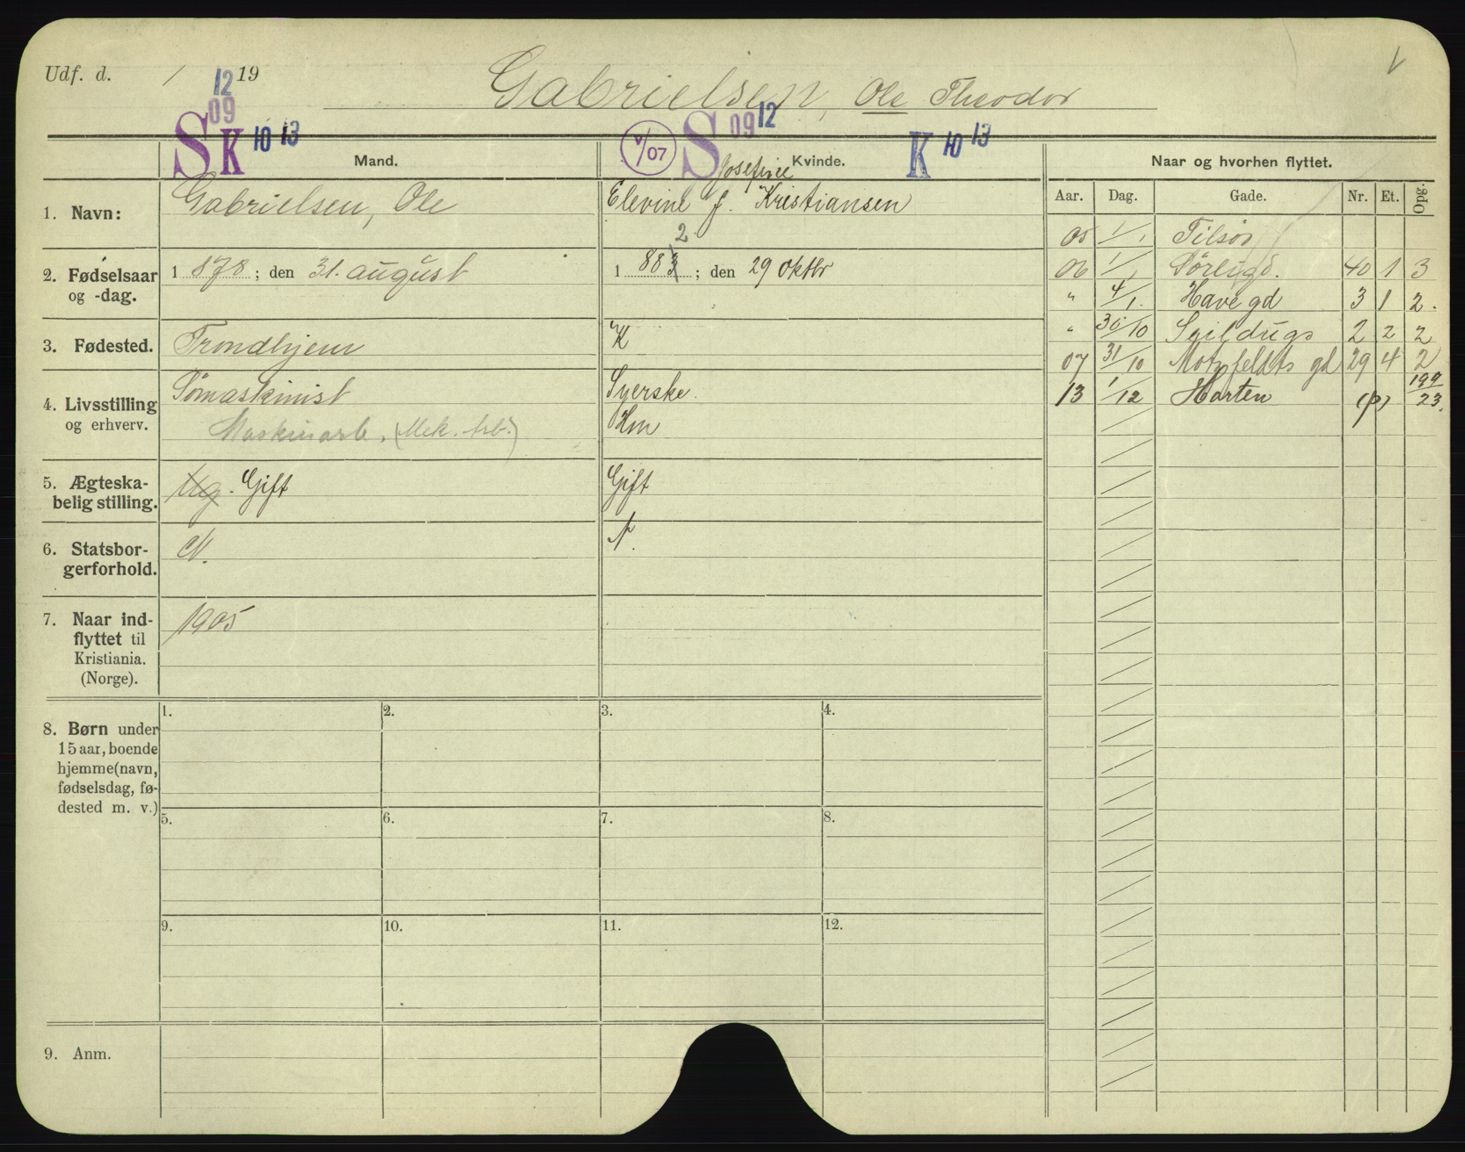 Udf. d. / 19
Gabrielsen, Ole Theodor
12
09
S K 10 13
V/07
S 09 12
K 10 13
Mand.
Kvinde.
Naar og hvorhen flyttet.
Aar. Dag. Gade. Nr. Et. Opg.
1. Navn:
Gabrielsen, Ole
Josefine
Elevine f. Kristiansen
2. Fødselsaar og -dag.
1 878 ; den 31. august
2
1 883 ; den 29 oktbr
3. Fødested.
Trondhjem
K
4. Livsstilling og erhverv.
Sømaskinist
Maskinarb. (Mek. Arb.)
Syerske.
Hm
5. Ægteskabelig stilling.
Ug. Gift
Gift
6. Statsborgerforhold.
N.
N.
7. Naar indflyttet til Kristiania. (Norge).
1905
05 1/1 Tilsør
06 1/1 Sørligd. 40 1 3
" 4/1. Havegd 3 1 2.
" 30/10 2 2 2
07 31/10 Motzfeldts gd 29 4 2
13 1/12 Horten (p) 199/23.
8. Børn under
15 aar, boende
hjemme (navn,
fødselsdag, fø-
dested m. v.)
1. 2. 3. 4.
5. 6. 7. 8.
9. 10. 11. 12.
9. Anm.